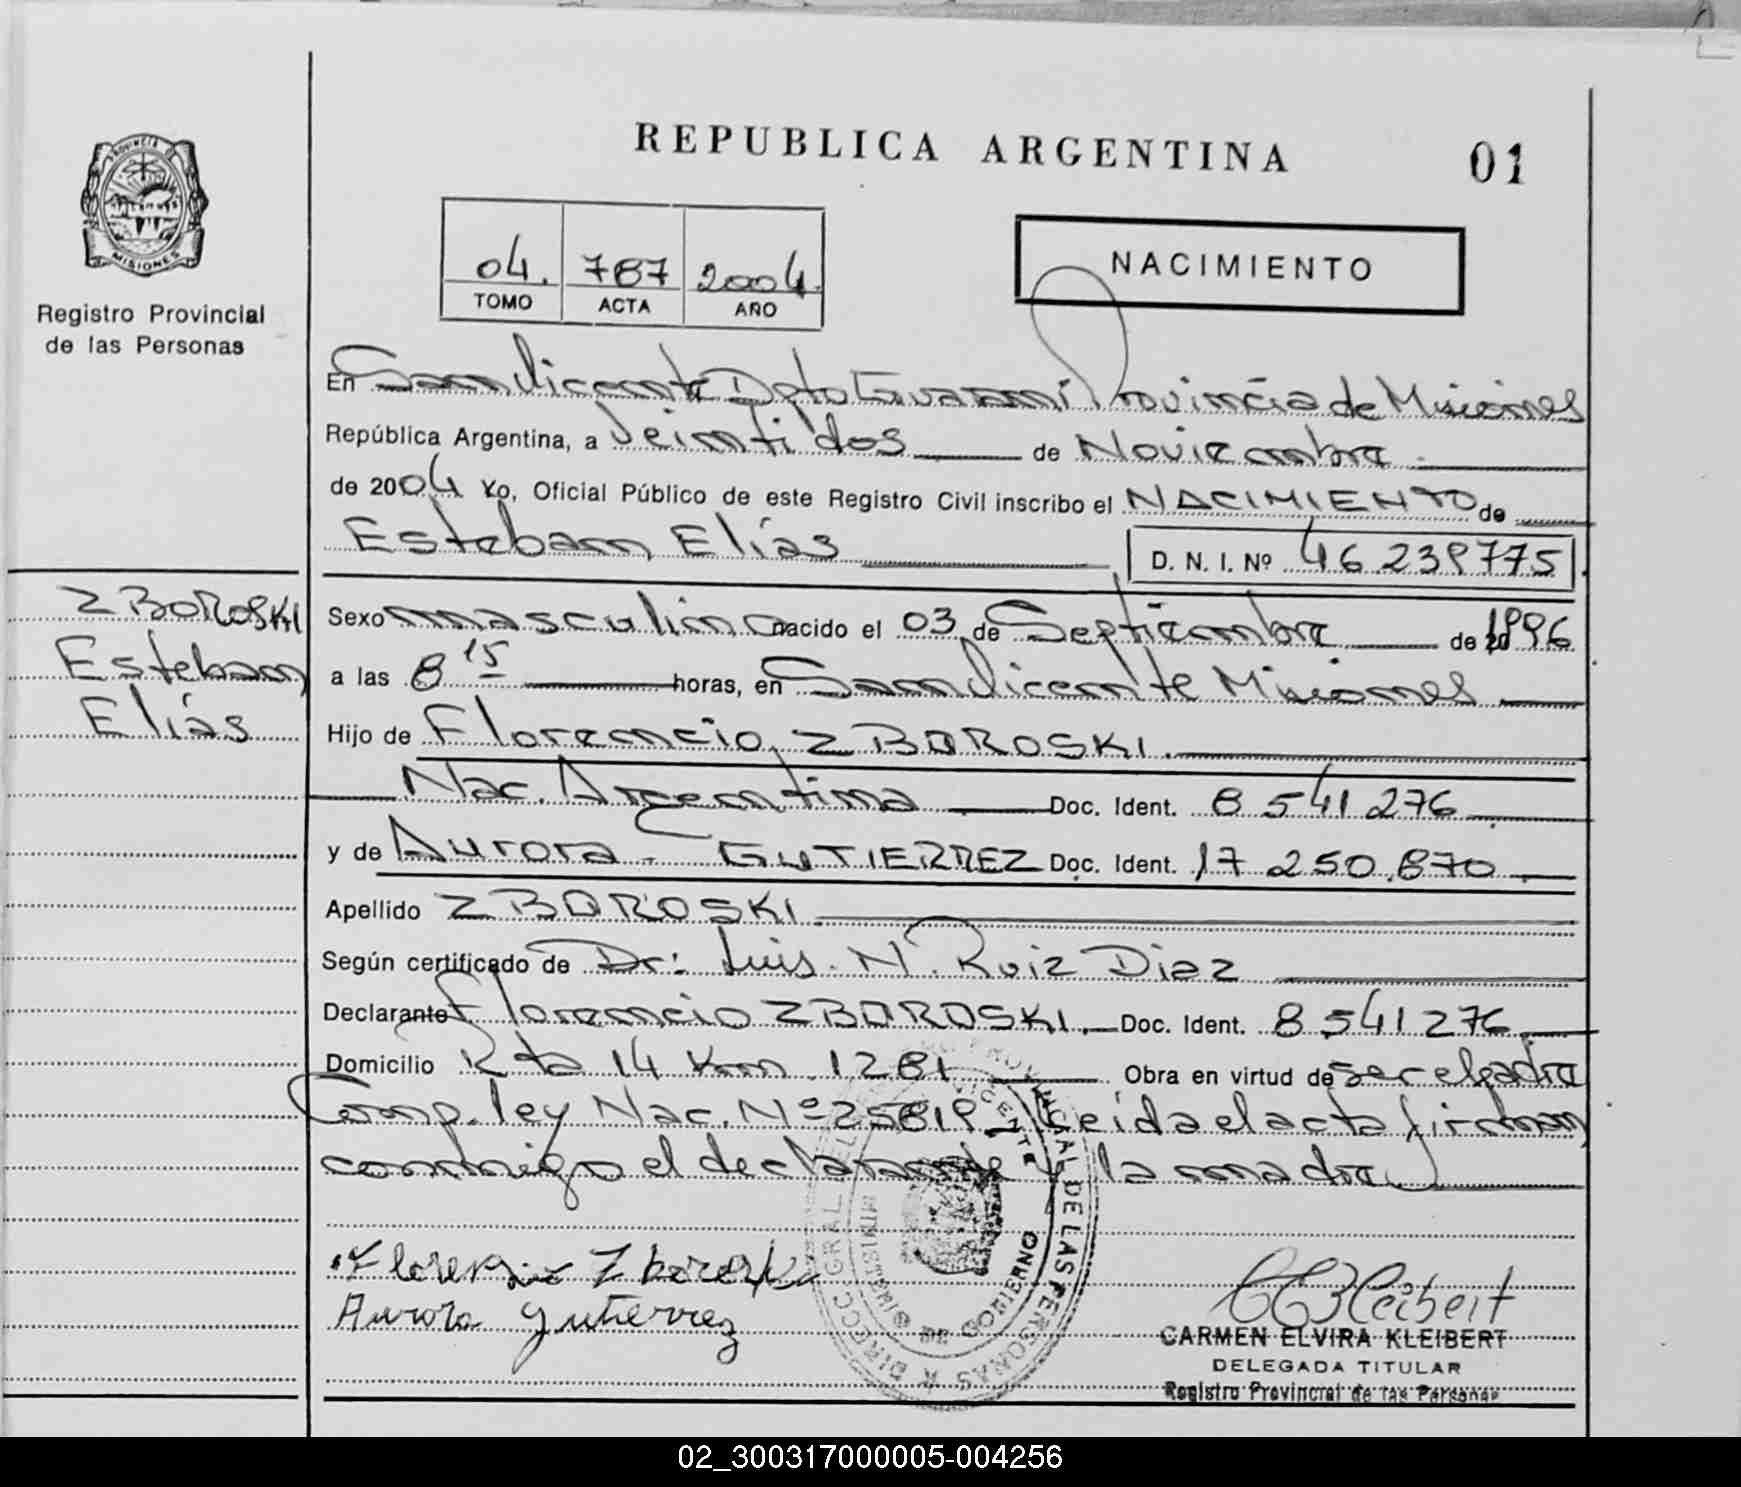 REPUBLICA ARGENTINA
01
PROVINCIA DE MISIONES
Registro Provincial
de las Personas
04. 787 2004.
TOMO ACTA AÑO
NACIMIENTO
En San Vicente Dpto Guaraní Provincia de Misiones
República Argentina, a Veintidos de Noviembre
de 2004 Yo, Oficial Público de este Registro Civil inscribo el NACIMIENTO de
Esteban Elías D. N. I. Nº 46.239775
ZBOROSKI
Esteban
Elías
Sexo masculino nacido el 03 de Septiembre de 1996
a las 8 15 horas, en San Vicente Misiones
Hijo de Florencio ZBOROSKI.
Nac. Argentina Doc. Ident. 8 541 276
y de Aurora - GUTIERREZ Doc. Ident. 17 250.870
Apellido ZBOROSKI
Según certificado de Dr: Luis. N. Ruiz Diaz
Declarante Florencio ZBOROSKI. Doc. Ident. 8.541 276
Domicilio Rta 14 Km 1281 Obra en virtud de ser el padre
Comp. ley Nac. Nº 25819 Leída el acta firman
conmigo el declarante y la madre
Florencio Zboroski
Aurora Gutierrez
DIRECC. GRAL. DEL PROVINCIAL DE LAS PERSONAS
MINISTERIO DE GOBIERNO
CEKleibert
CARMEN ELVIRA KLEIBERT
DELEGADA TITULAR
Registro Provincial de las Personas
02_300317000005-004256